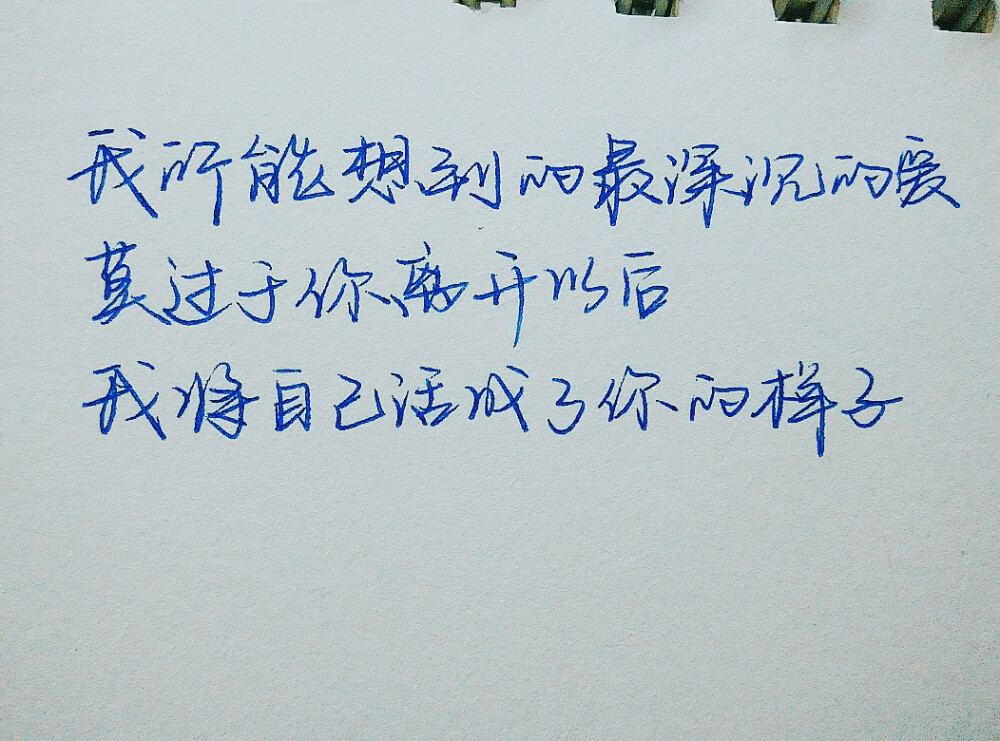 我所能想到的最深沉的爱
莫过于你离开以后
我将自己活成了你的样子